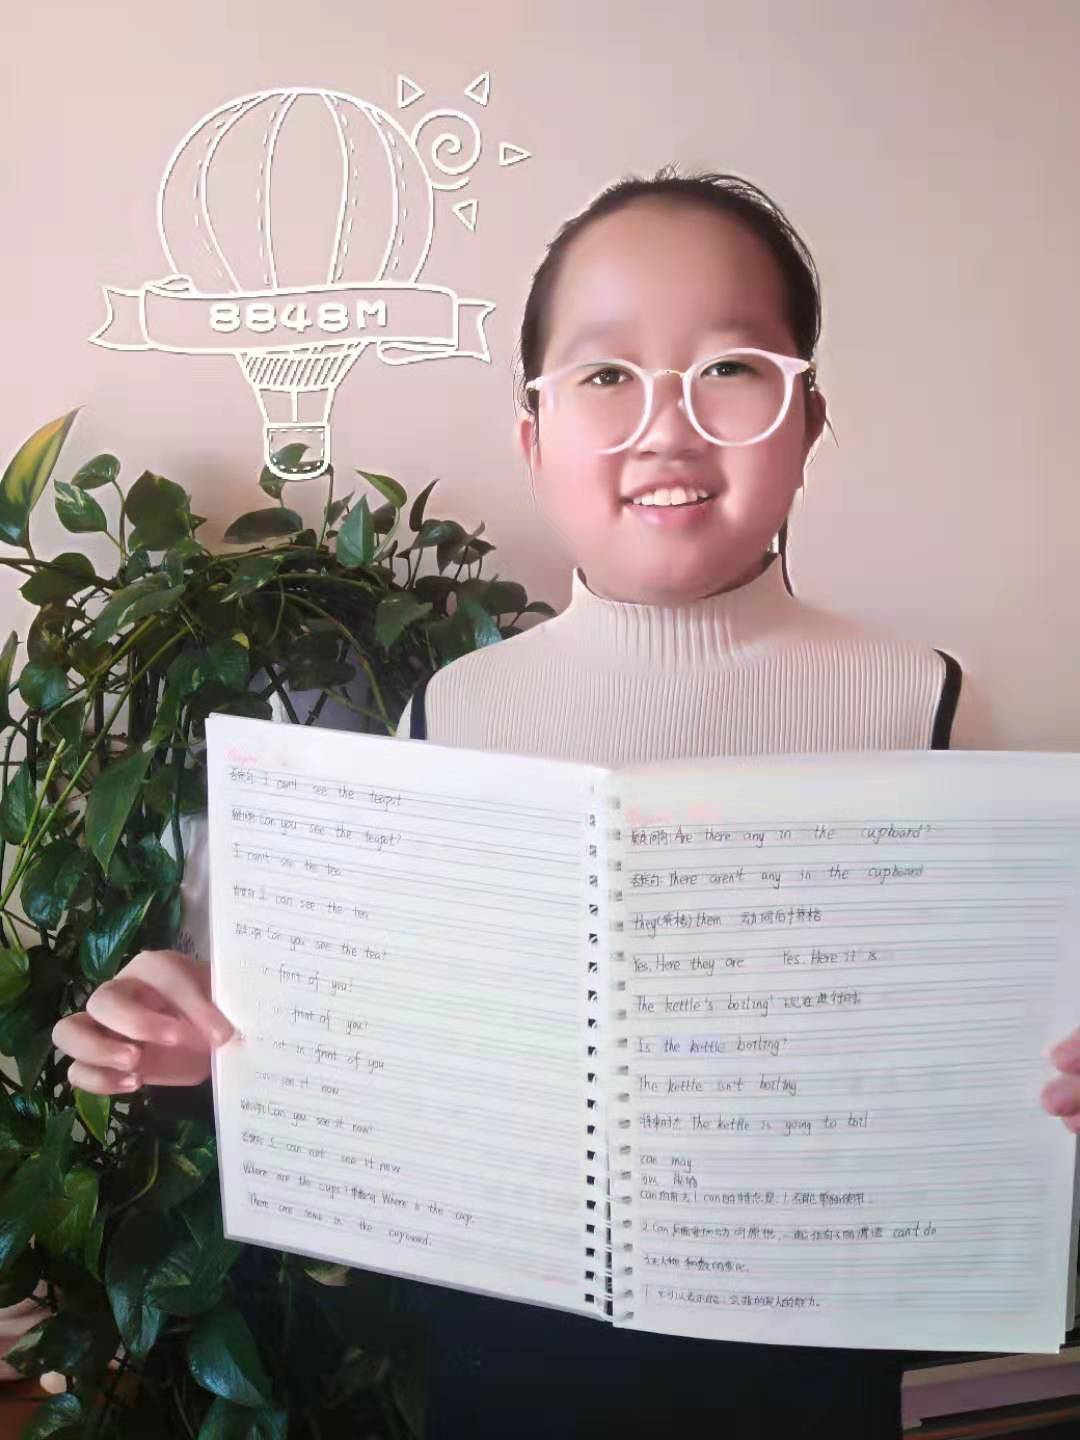 8848M
否定句: I can't see the teapot
疑问句: Can you see the teapot?
I can't see the tea
肯定句 I can see the tea
疑问句 Can you see the tea?
in front of you!
in front of you?
not in front of you
see it now
疑问句: Can you see it now?
否定句: I can not see it now
Where are the cups? 单数句 Where is the cup.
There are some in the cupboard.
疑问句: Are there any in the cupboard?
否定句: There aren't any in the cupboard
they(主格) them 动词后+宾格
Yes. Here they are Yes. Here it is.
The kettle's boiling! 现在进行时
Is the kettle boiling?
The kettle isn't boiling
将来时 The kettle is going to boil
can may
可以 能够
can的用法 1 can的特点是: 1.不能单独使用.
2. Can 动词原形, 一起 谓语 can't do
3.无人称和数的变化.
1. 能力.